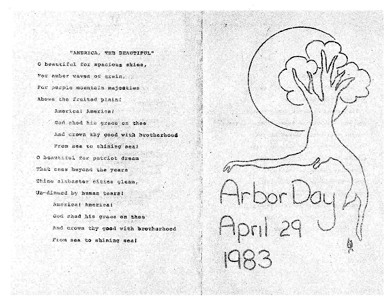 "AMERICA, THE BEAUTIFUL"
O beautiful for spacious skies,
For amber waves of grain,
For purple mountain majesties
Above the fruited plain!
America! America!
God shed his grace on thee
And crown thy good with brotherhood
From sea to shining sea!
O beautiful for patriot dream
That sees beyond the years
Thine alabaster cities gleam,
Un-dimmed by human tears!
America! America!
God shed his grace on thee
And crown thy good with brotherhood
From sea to shining sea!
Arbor Day
April 29
1983